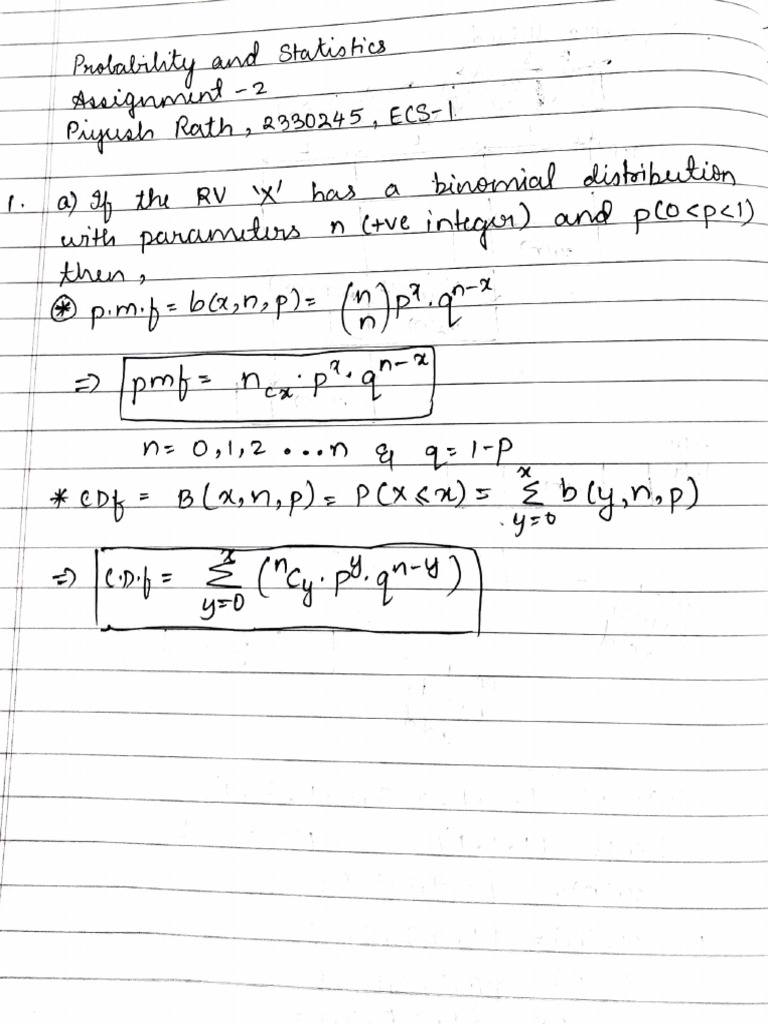 Probability and Statistics
Assignment - 2
Piyush Rath, 2330245, ECS-1
1. a) If the RV 'X' has a binomial distribution
with parameters n (+ve integer) and p(0<p<1)
then,
⊛ p.m.f = b(x,n,p) = (n n) p^x . q^n-x
=> pmf = n_cx . p^x . q^n-x
n = 0,1,2 ...n & q = 1-p
* CDf = B(x,n,p) = P(X≤x) = Σ_{y=0}^{x} b(y,n,p)
=> C.D.f = Σ_{y=0}^{x} (ⁿC_y . p^y . q^n-y)